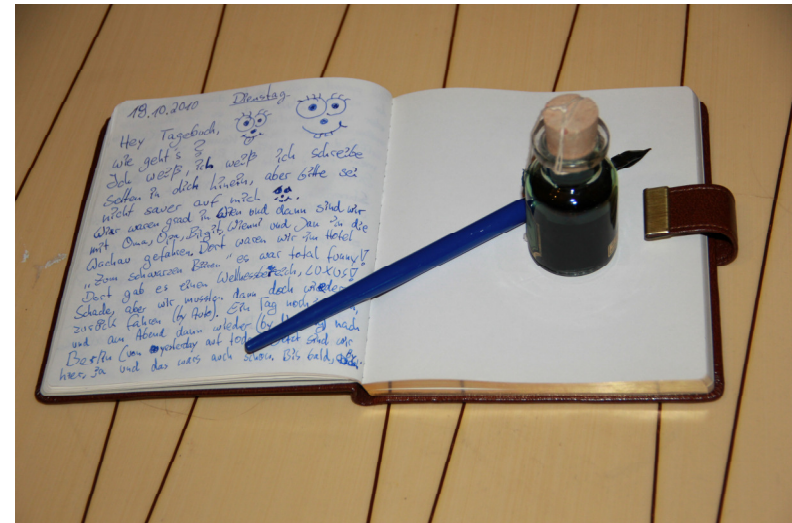 19.10.2010 Dienstag.
Hey Tagebuch,
wie geht's?
Ich weiß, ich weiß ich schreibe
selten in dich hinein, aber bitte sei
nicht sauer auf mich
Wir waren grad in Wien und dann sind wir
mit Oma, Opa, Birgit, Wienni und Jan in die
Wachau gefahren. Dort waren wir im Hotel
„Zum schwarzen Bären" es war total funny!
Dort gab es einen Wellnessbereich, LUXUS!
Schade, aber wir mussten dann doch wieder
zurück fahren (by Auto). Ein Tag noch
und am Abend dann wieder (by nach
Berlin (von yesterday auf sind wir
hier. Ja und das wars auch schon. Bis bald,